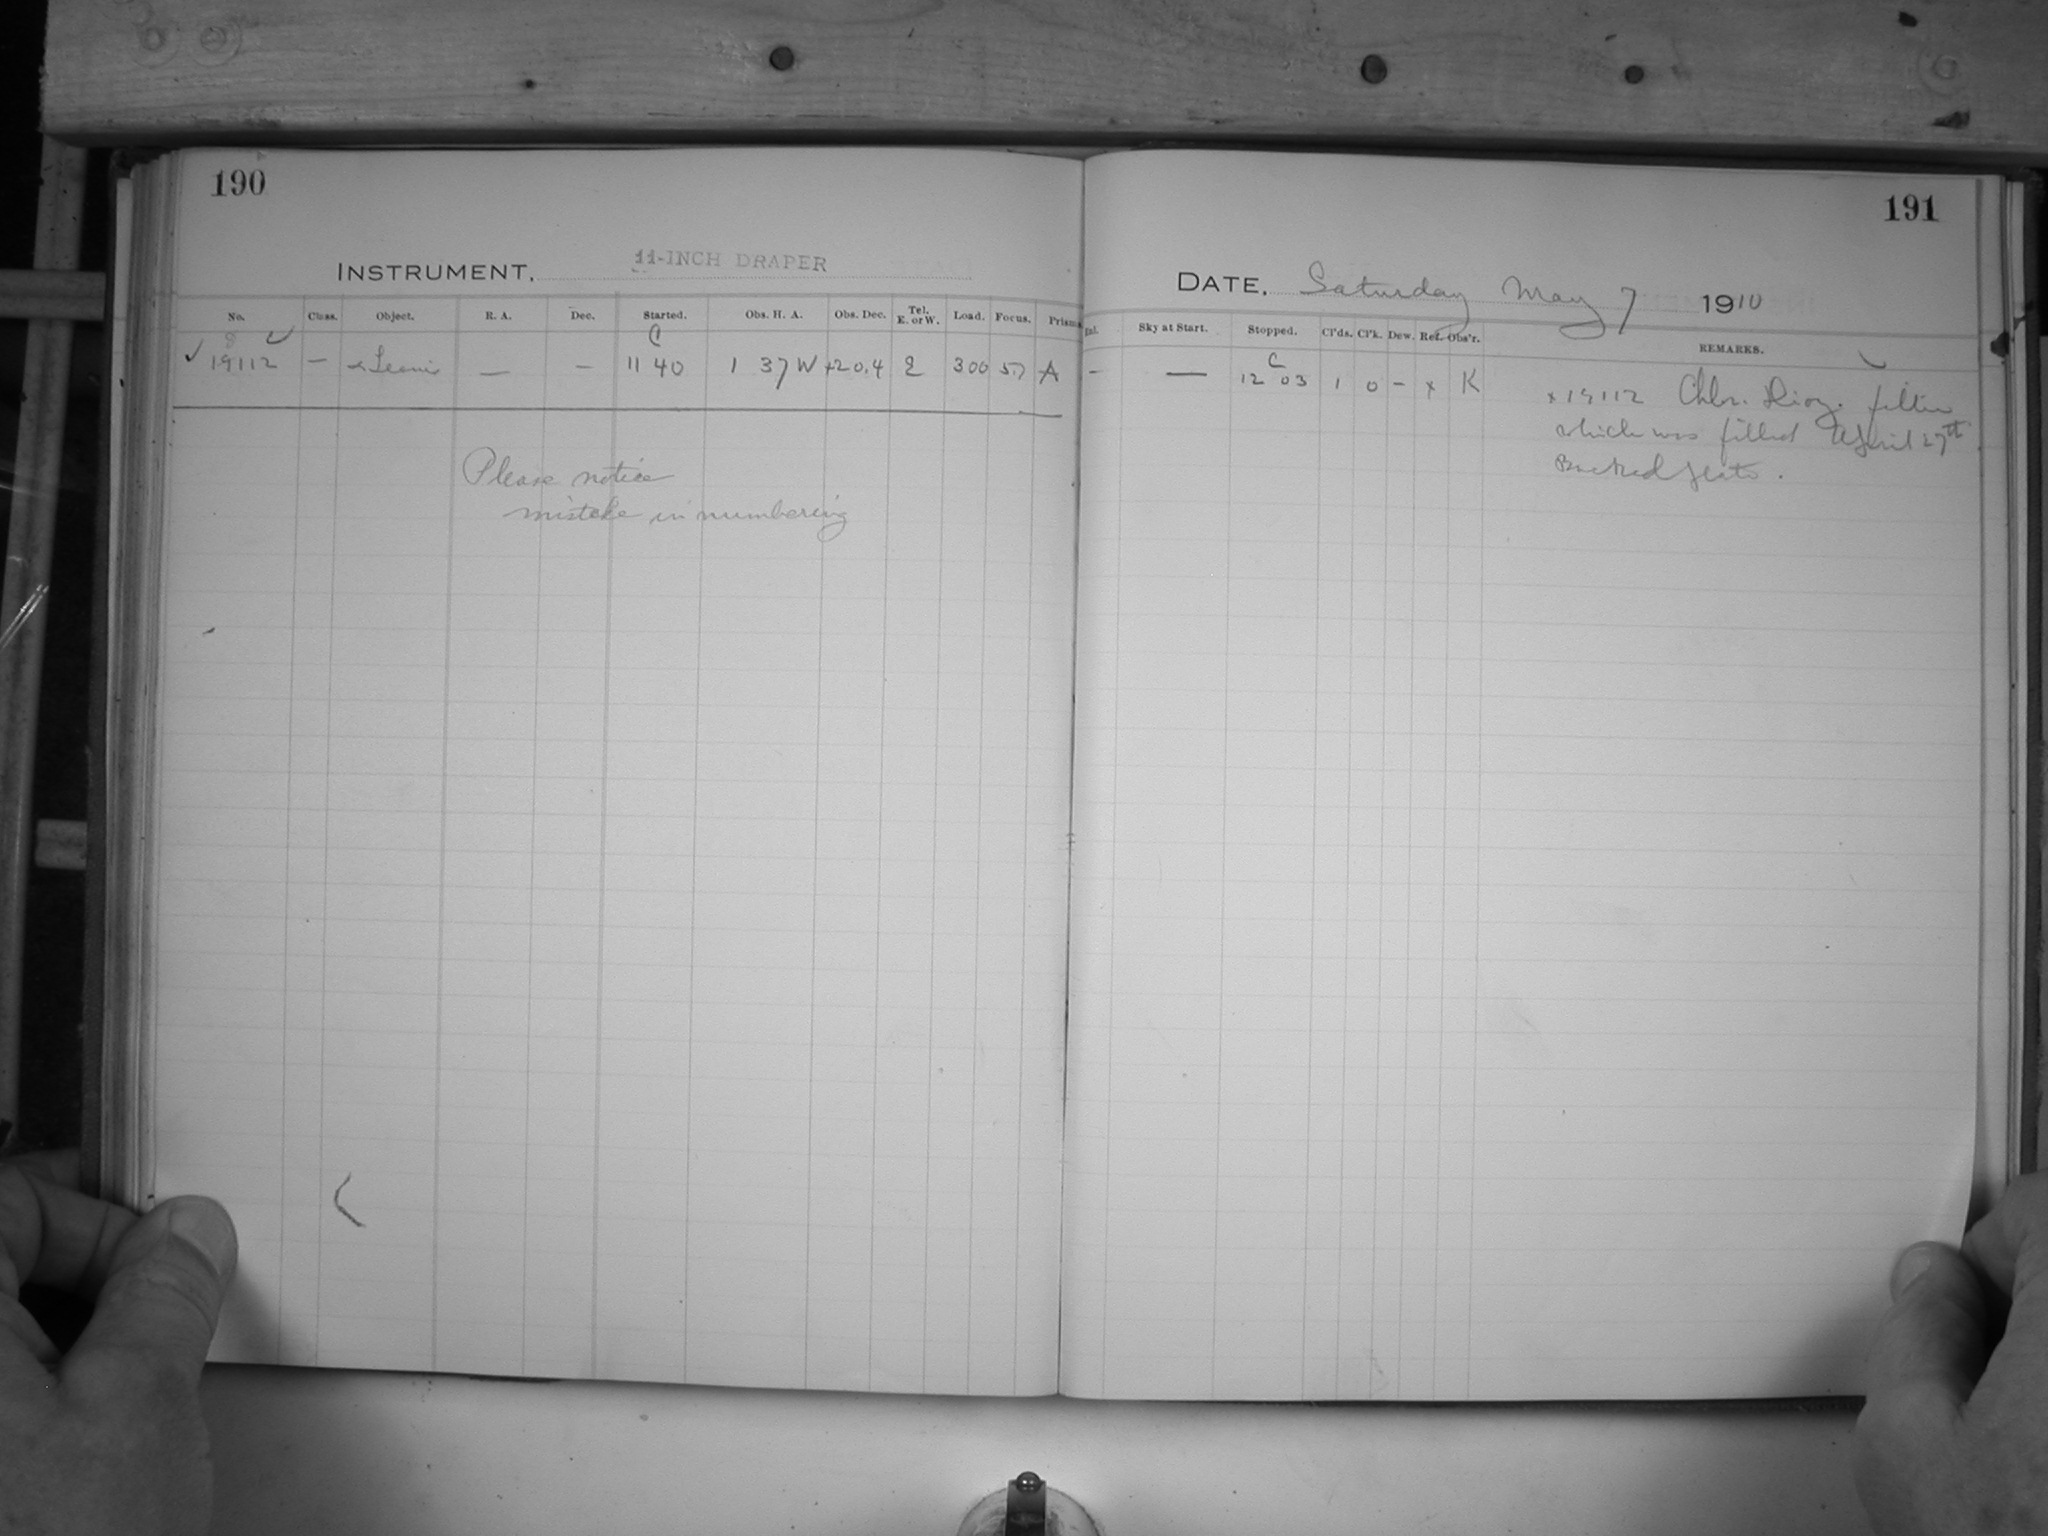 190
INSTRUMENT, 11-INCH DRAPER
No. Class. Object. R. A. Dec. Started. Obs. H. A. Obs. Dec. Tel. E. or W. Load. Focus. Prism
C
✓ 19112 — — — 11 40 1 37 W +20.4 E 300 5.7 A
Please notice
mistake in numbering
191
DATE, Saturday May 7 1910
Sky at Start. Stopped. Cl'ds. Cl'k. Dew. Ref. Obs'r. REMARKS.
C
— — 12 03 1 0 - x K
x 19112 Chlor. filter
which was filled April 27th
Backed plate.